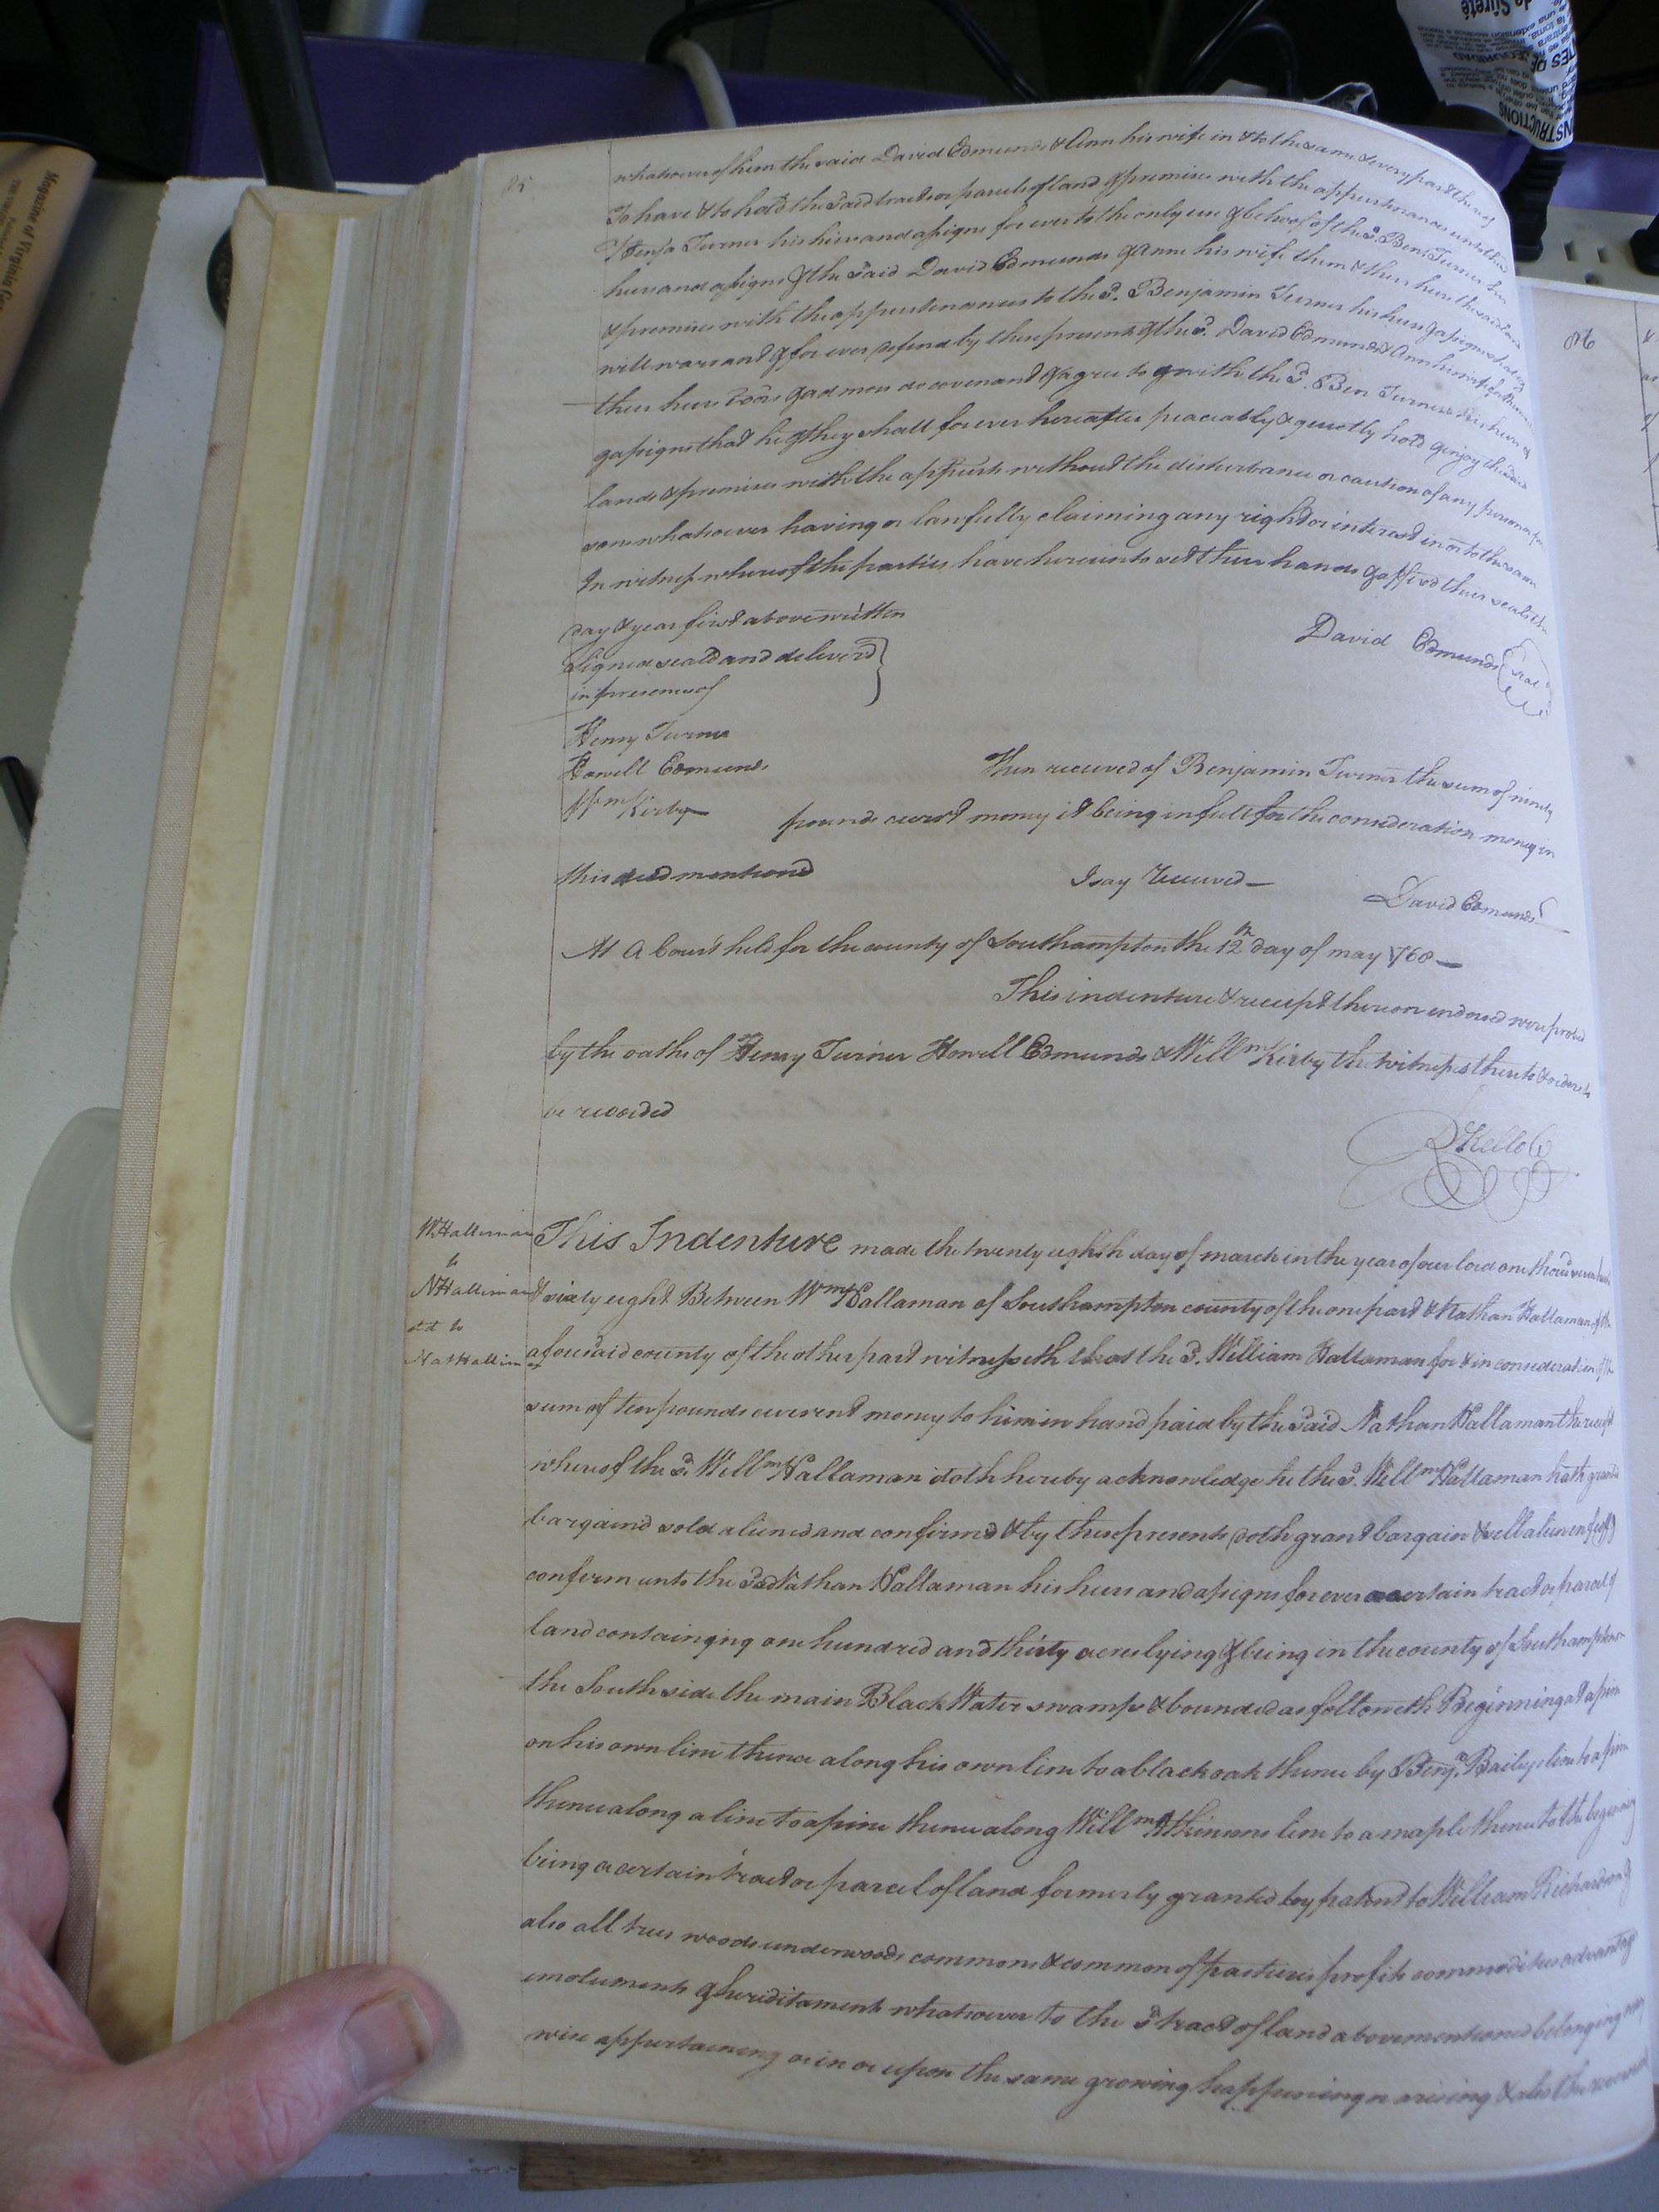 85
whatsoever of him the said David Edmunds & Ann his wife in & to the same & every part thereof
To have & to hold the said tract or parcel of land & premises with the appurtenances unto the said
Benja Turner his heirs and assigns for ever to the only use & behoof of the sd. Ben Turner his
heirs and assigns & the said David Edmunds & Anne his wife them & their heirs the said land
& premises with the appurtenances to the sd. Benjamin Turner his heirs & assigns
will warrant & for ever defend by these presents & the sd. David Edmunds & Ann his wife for them
their heirs Exors & admors do covenant & agree to & with the sd. Ben Turner his heirs
& assigns that he & they shall for ever hereafter peaceably & quietly hold & enjoy the said
lands & premises with the appurts without the disturbance or caution of any person or per
sons whatsoever having or lawfully claiming any right or interest in or to the same
In witness whereof the parties have hereunto set their hands & affixd their seals the
day & year first above written
Signed seald and deliverd
in presence of
David Edmunds seal
Henry Turner
Howell Edmunds
Wm Kirby
Then received of Benjamin Turner the sum of ninety
pounds currt money it being in full for the consideration money in
this deed mentiond
I say Received
David Edmunds
At A Court held for the county of Southampton the 12th day of may 1768
This indenture & receipt thereon endorsed were proved
by the oaths of Henry Turner Howell Edmunds & Willm Kirby the witnesses thereto & orderd to
be recorded
R Kello C
W Halleman
to
N Halleman
This Indenture made the twenty eighth day of march in the year of our lord one thousd seven hund
& sixty eight Between Wm Hallaman of Southampton county of the one part & Nathan Hallaman of the
aforesaid county of the other part witnesseth that the sd. William Hallaman for & in consideration of the
sum of ten pounds current money to him in hand paid by the said Nathan Hallaman the receipt
whereof the sd. Willm Hallaman doth hereby acknowledge he the sd. Willm Hallaman hath granted
bargaind sold aliened and confirmd & by these presents doth grant bargain & sell alien enfeoff &
confirm unto the sd Nathan Hallaman his heirs and assigns for ever a certain tract or parcel of
land containging one hundred and thirty acres lying & being in the county of Southampton on
the South side the main Black Water swamp & bounded as followeth Beginning at a pine
on his own line thence along his own line to a black oak thence by Benja. Bailys line to a pine
thence along a line to a pine thence along Willm Atkinsons line to a maple thence to the begining
being a certain tract or parcel of land formerly granted by patent to William Richardson &
also all trees woods underwoods commons & common of pastures profits commodities advantages
emoluments & hereditaments whatsoever to the sd tract of land abovementioned belonging or any
wise appertaining or in or upon the same growing happening or arising & also the reversion
86
Magazine of Virginia